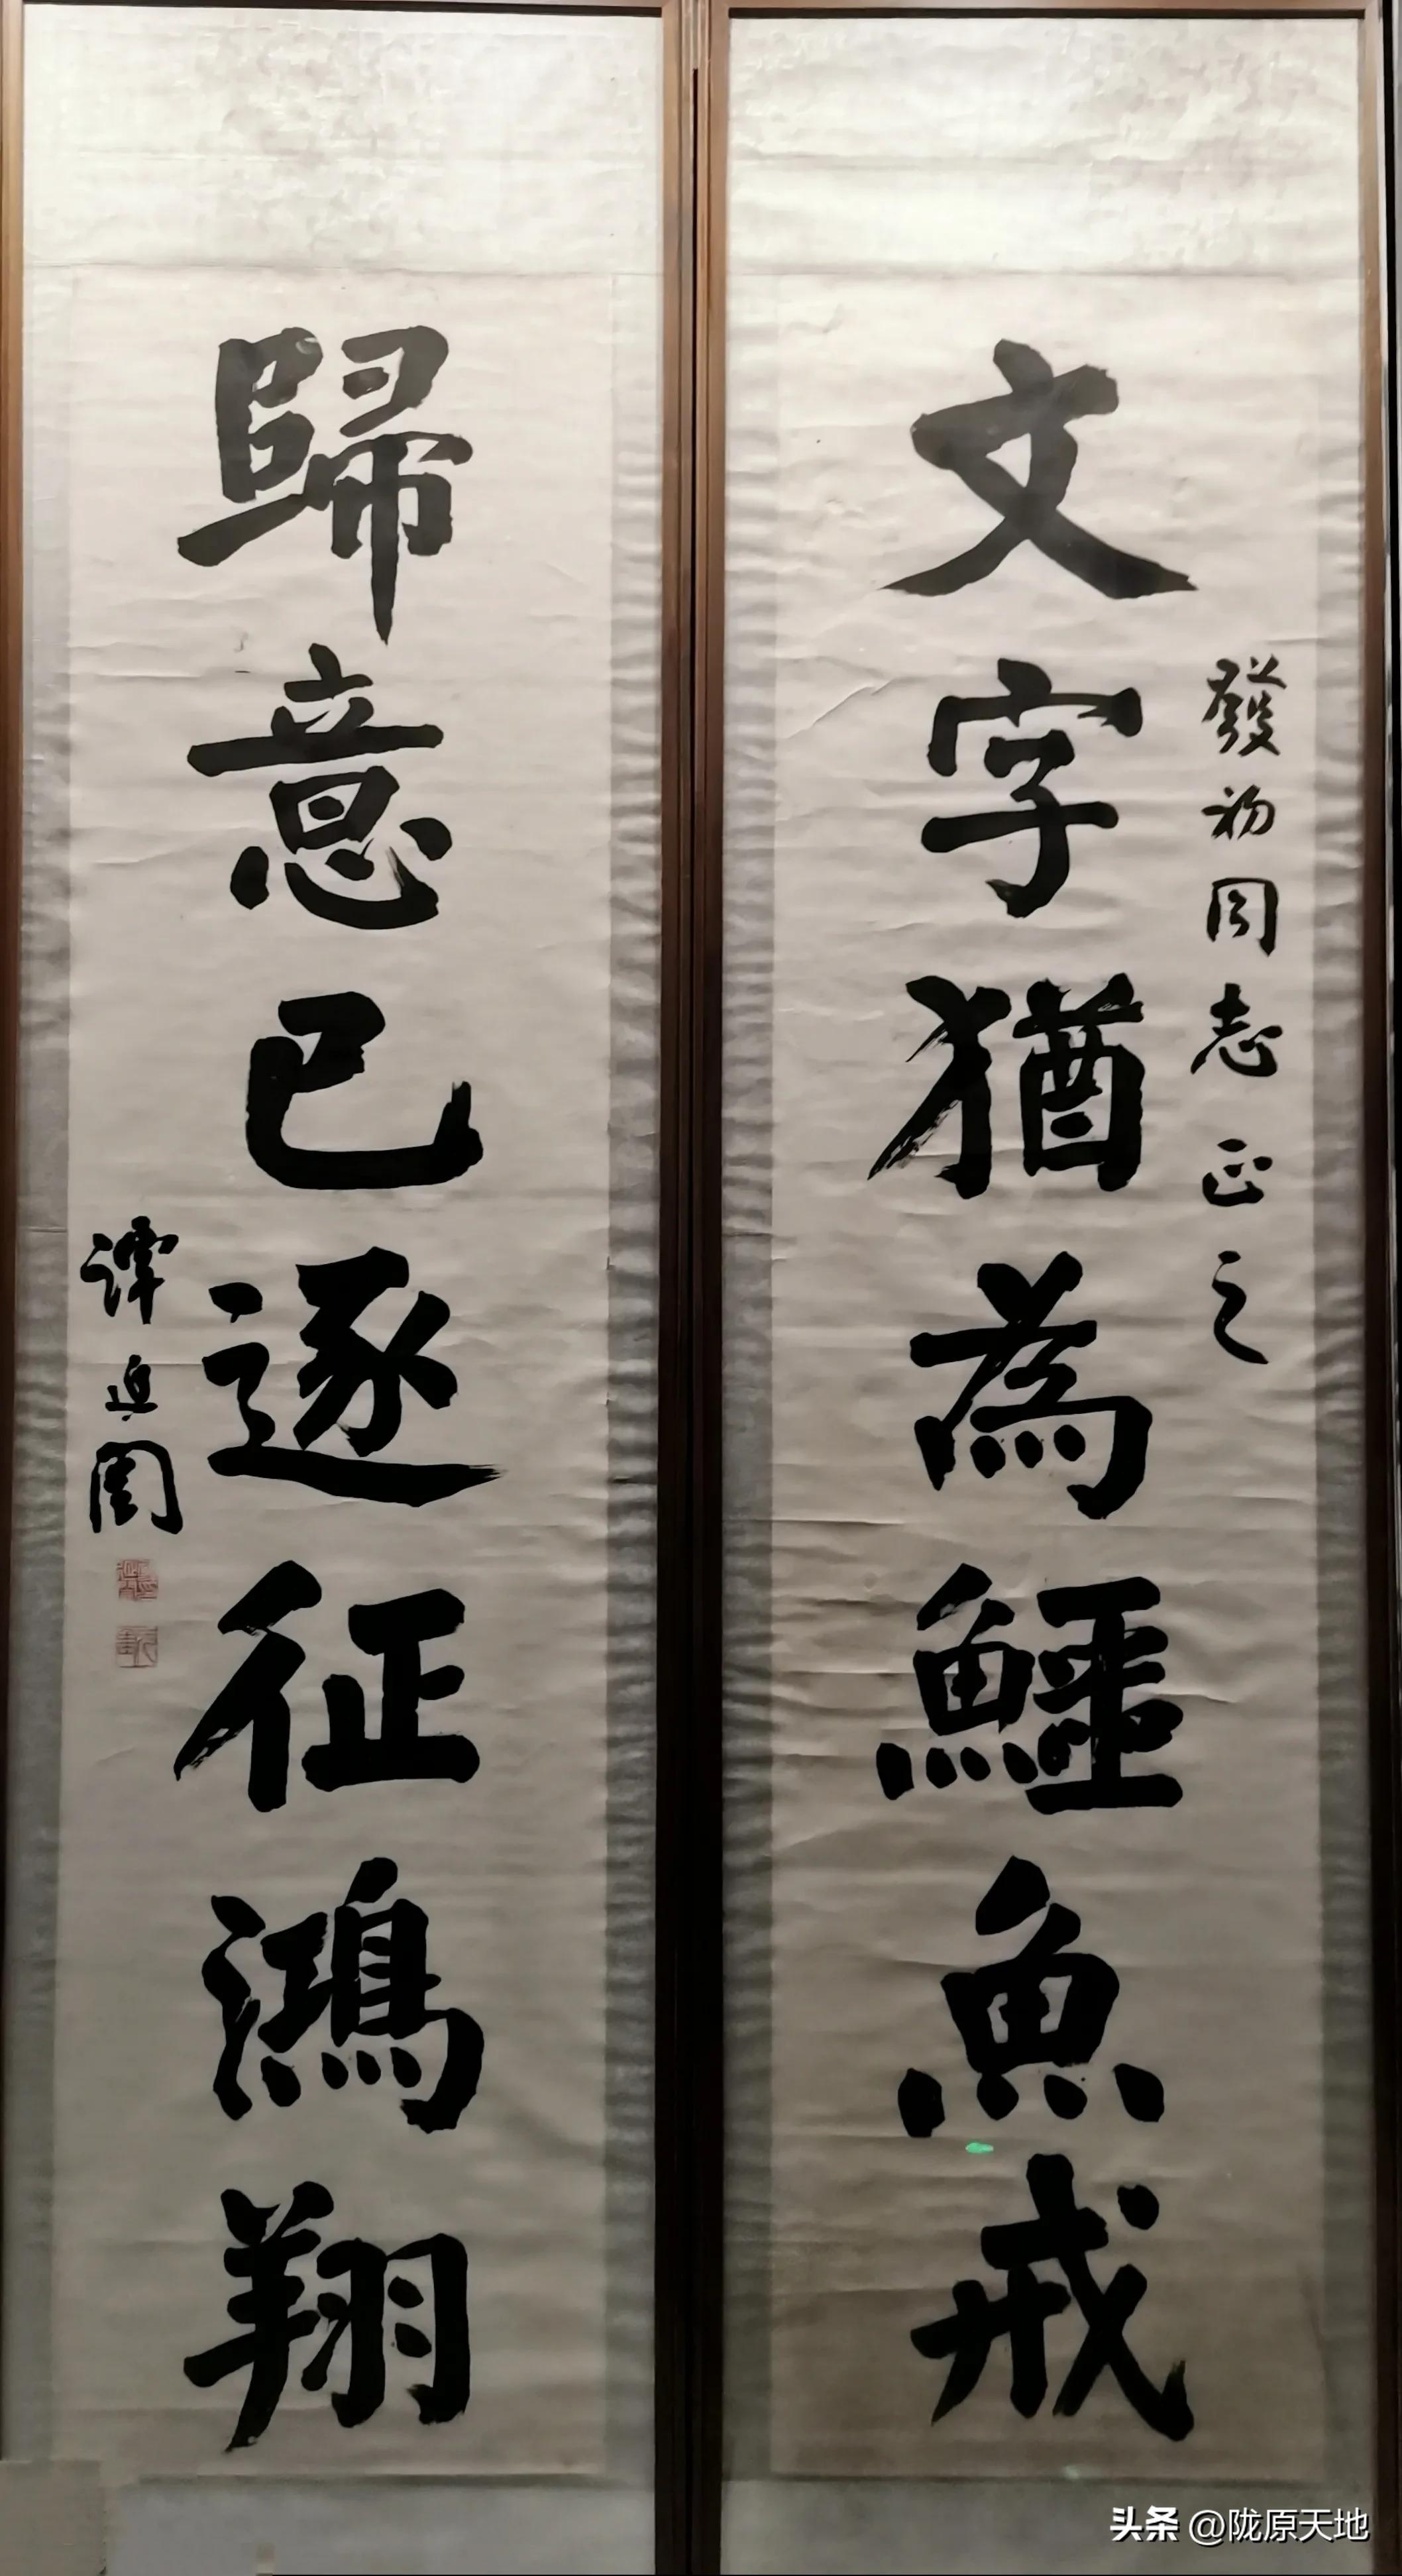 發初同志正之
文字猶為鱷魚戒
歸意已逐征鴻翔
譚延闓
头条 @陇原天地